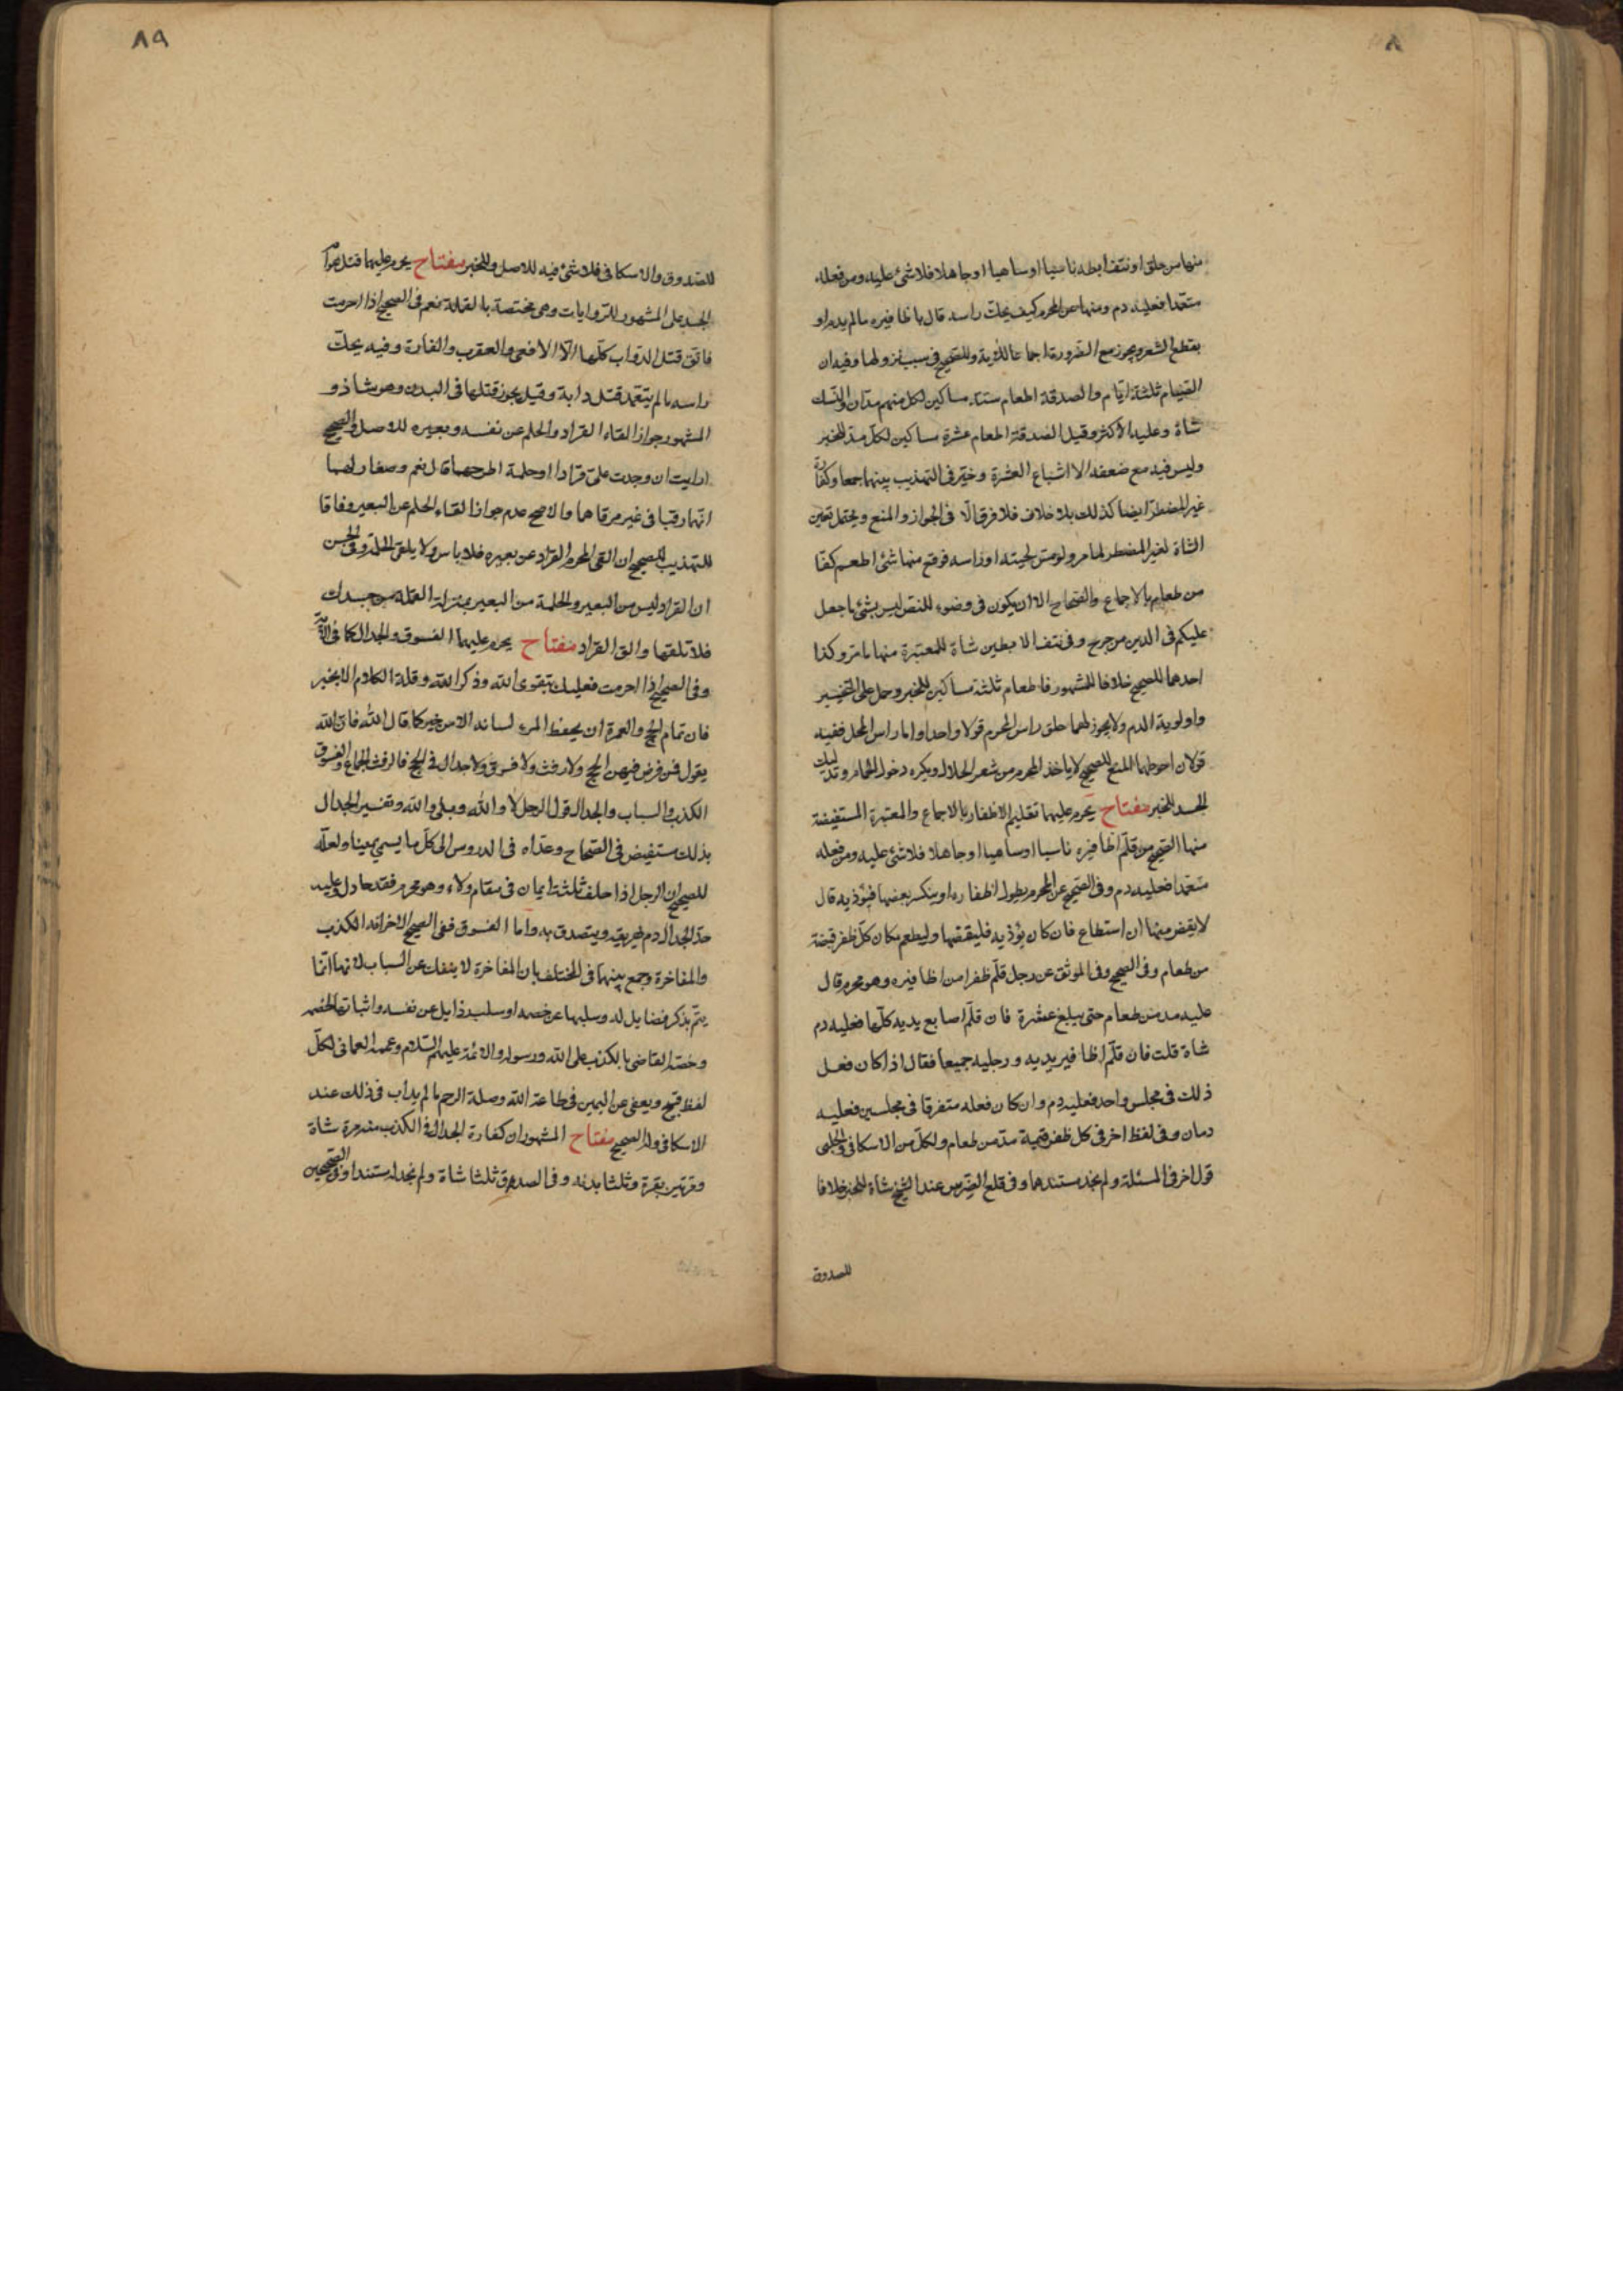 ٨
منها من حلق او نتف ابطه ناسيا او ساهيا او جاهلا فلا شئ عليه ومن فعله
متعمدا فعليه دم ومنها عن المحرم كيف يحك راسه قال باظافيره ما لم يدم او
يقطع الشعر ويجوز مع الضرورة اجماعا للاية وللصحيح فى سبب نزولها وفيه ان
الصيام ثلثة ايام والصدقة اطعام ستة مساكين لكل منهم مدان والنسك
شاة وعليه الأكثر وقيل الصدقة اطعام عشرة مساكين لكل مد للخبر
وليس فيه مع ضعفه الا اشباع العشرة وخير فى التهذيب بينهما جمعا وكفارة
غير المضطر ايضا كذلك بلا خلاف فلا فرق الا فى الجواز والمنع ويحتمل تعين
الشاة لغير المضطر لما مر ولو مس لحيته او راسه فوقع منها شئ اطعم كفا
من طعام بالاجماع والصحاح الا ان يكون فى وضوء للنص ليس بشئ ما جعل
عليكم فى الدين من حرج وفى نتف الابطين شاة للمعتبرة منها ما مر وكذا
احدهما للصحيح خلافا للمشهور فاطعام ثلثة مساكين للخبر وحمل على التخيير
واولوية الدم ولا يجوز لهما حلق راس المحرم قولا واحدا واما راس المحل ففيه
قولان احوطهما المنع للصحيح لا ياخذ المحرم من شعر الحلال ويكره دخول الحمام وتدليك
الجسد للخبر مفتاح يحرم عليهما تقليم الاظفار بالاجماع والمعتبرة المستفيضة
منها الصحيح من قلم اظافيره ناسيا او ساهيا او جاهلا فلا شئ عليه ومن فعله
متعمدا فعليه دم وفى الصحيح عن المحرم يطول اظفاره او ينكسر بعضها فيؤذيه قال
لا يقض منها ان استطاع فان كان يؤذيه فليقصها وليطعم مكان كل ظفر قبضة
من طعام وفى الصحيح وفى الموثق عن رجل قلم ظفرا من اظافيره وهو محرم قال
عليه مد من طعام حتى يبلغ عشرة فان قلم اصابع يديه كلها فعليه دم
شاة قلت فان قلم اظافير يديه ورجليه جميعا فقال اذا كان فعل
ذلك فى مجلس واحد فعليه دم وان كان فعله متفرقا فى مجلسين فعليه
دمان وفى لفظ اخر فى كل ظفر قيمة مد من طعام ولكل من الاسكافى والحلبى
قول اخر فى المسئلة ولم نجد مستندهما وفى قلع الضرس عند الشيخ شاة للخبر خلافا
للصدوق
٨٩
للصدوق والاسكافى فلا شئ فيه للاصل وللخبر مفتاح يحرم عليهما قتل هوام
الجسد على المشهور للروايات وهى مختصة بالقملة نعم فى الصحيح اذا احرمت
فاتق قتل الدواب كلها الا الافعى والعقرب والفارة وفيه يحك
راسه ما لم يتعمد قتل دابة وقيل يجوز قتلها فى البدن وهو شاذ و
المشهور جواز القاء القراد والحلم عن نفسه وبعيره للاصل والصحيح
ارايت ان وجدت على قرادا او حلمة اطرحهما قال نعم وصغار لهما
انهما رقيا فى غير مرقاهما والاصح عدم جواز القاء الحلم عن البعير وفاقا
للتهذيب للصحيح ان القى المحرم القراد عن بعيره فلا باس ولا يلقى الحلمة وفى الحسن
ان القراد ليس من البعير والحلمة من البعير بمنزلة القملة من جسدك
فلا تلقها والق القراد مفتاح يحرم عليهما الفسوق والجدال كما فى الاية
وفى الصحيح اذا احرمت فعليك بتقوى الله وذكر الله وقلة الكلام الا بخير
فان تمام الحج والعمرة ان يحفظ المرء لسانه الا من خير كما قال الله فان الله
يقول فمن فرض فيهن الحج ولا رفث ولا فسوق ولا جدال فى الحج فالرفث الجماع والفسوق
الكذب والسباب والجدال قول الرجل لا والله وبلى والله وتفسير الجدال
بذلك مستفيض فى الصحاح وعداه فى الدروس الى كل ما يسمى يمينا ولعله
للصحيح ان الرجل اذا حلف ثلثة ايمان فى مقام ولاء وهو محرم فقد جادل وعليه
حد الجدال دم يهريقه ويتصدق به واما الفسوق ففى الصحيح الاخر انه الكذب
والمفاخرة وجمع بينهما فى المختلف بان المفاخرة لا ينفك عن السباب لانها انما
يتم بذكر فضايل له وسلبها عن خصمه او سلب رذايل عن نفسه واثباتها لخصمه
وخصه القاضى بالكذب على الله ورسوله والائمة عليهم السلام وعممه العمانى لكل
لفظ قبيح ويعفى عن اليمين فى طاعة الله وصلة الرحم ما لم يداب فى ذلك عند
الاسكافى وله الصحيح مفتاح المشهور ان كفارة الجدال فى الكذب منه مرة شاة
ومرتين بقرة وثلثا بدنه وفى الصدق ثلثا شاة ولم نجد له مستندا وفى الصحيحين